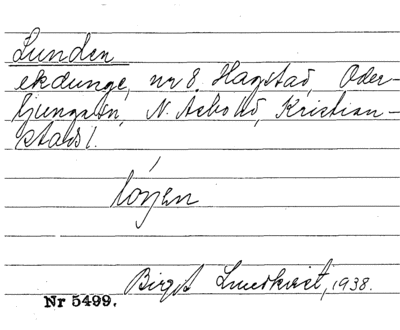 Lunden
ekdunge, nr 8. Hagstad, Oder-
ljunga sn, N. Åsbo hd, Kristian-
stads l.
Birgit Lundkvist, 1938.
Nr 5499.